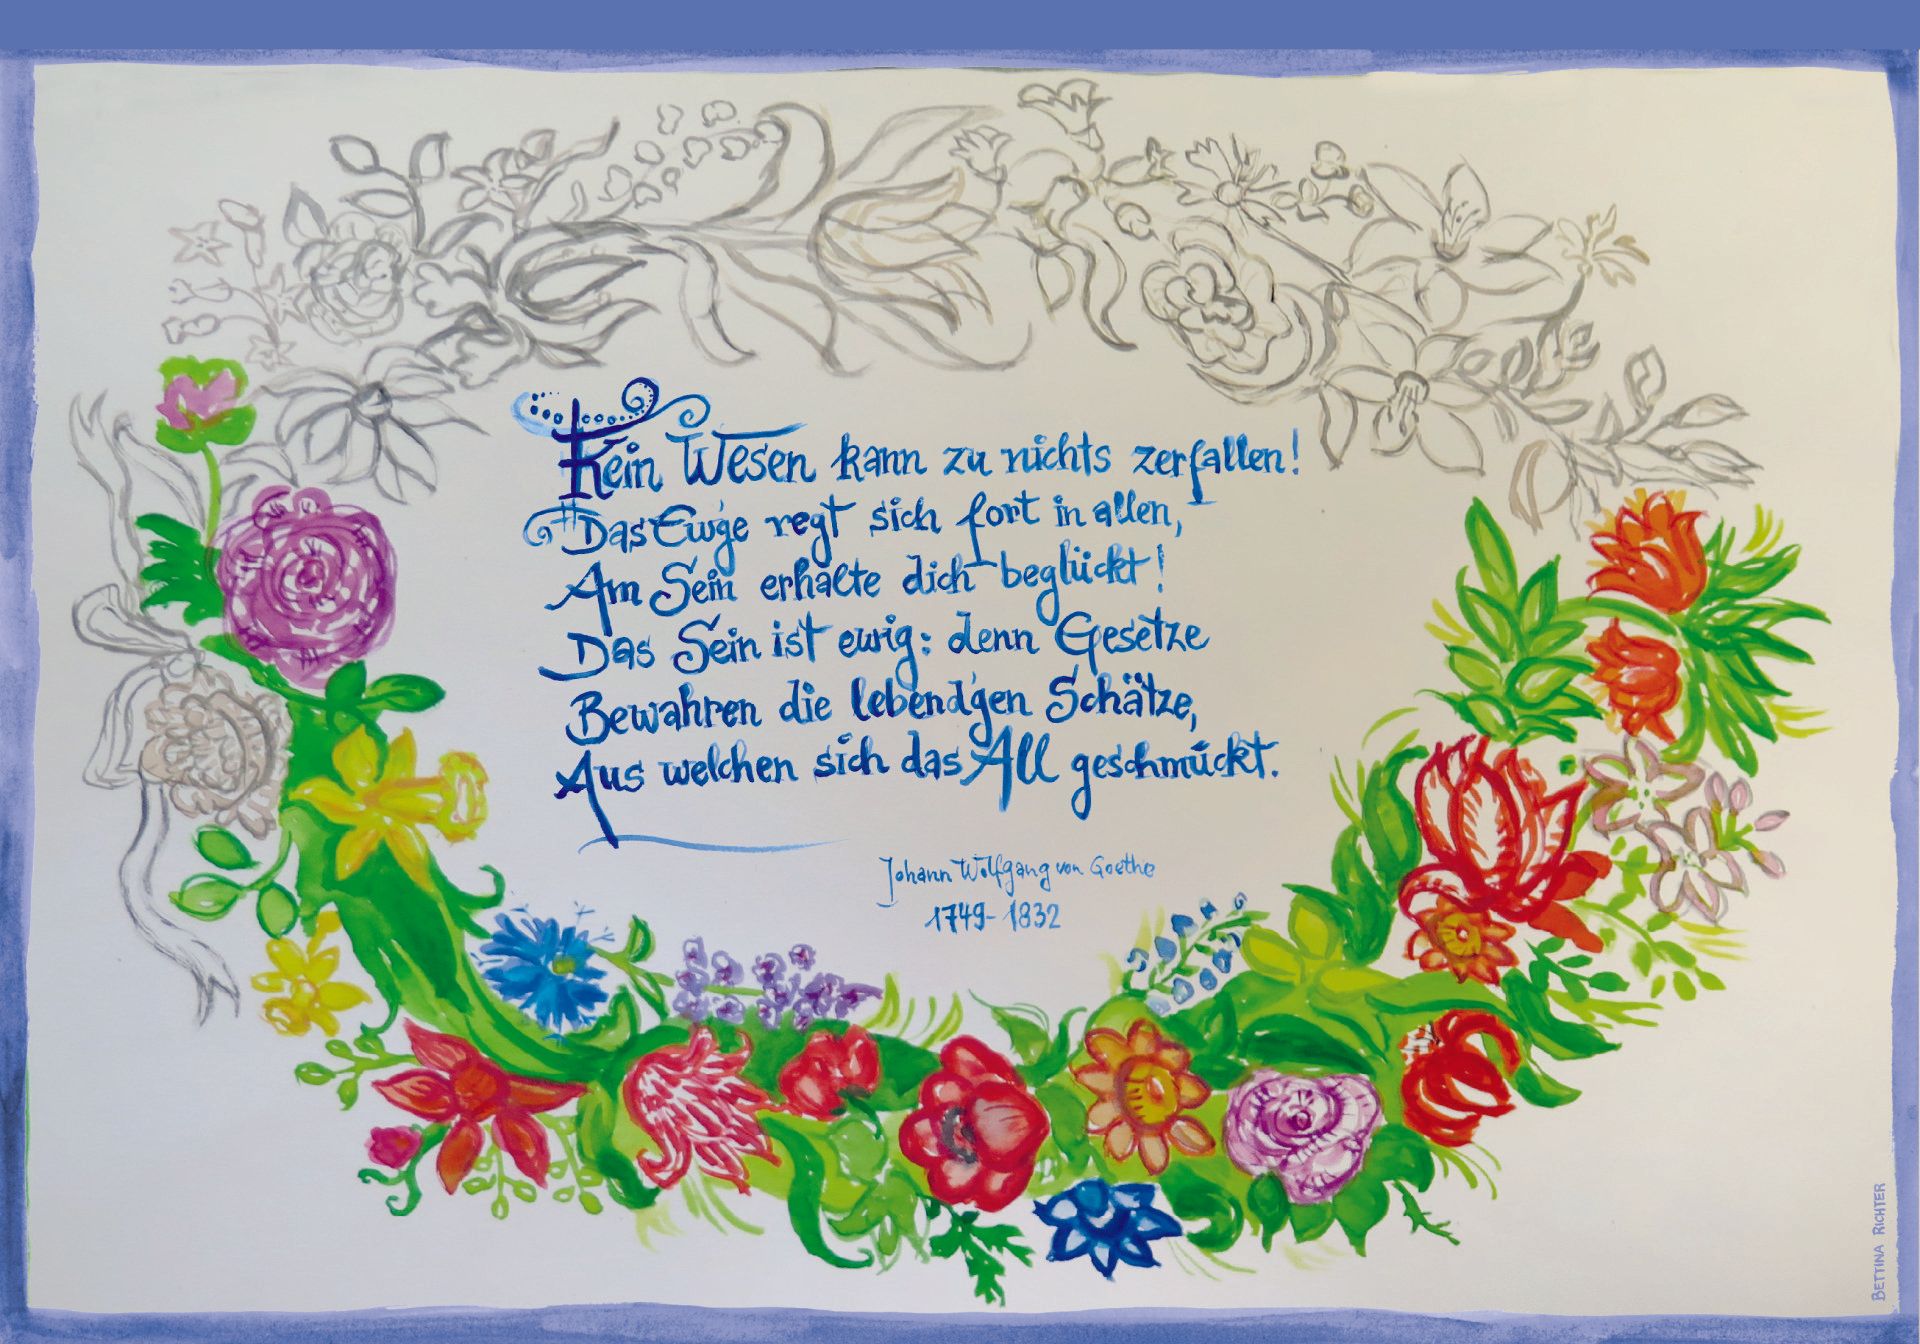 Kein Wesen kann zu nichts zerfallen!
Das Ew'ge regt sich fort in allen,
Am Sein erhalte dich beglückt!
Das Sein ist ewig: denn Gesetze
Bewahren die lebend'gen Schätze,
Aus welchen sich das All geschmückt.
Johann Wolfgang von Goethe
1749-1832
BETTINA RICHTER